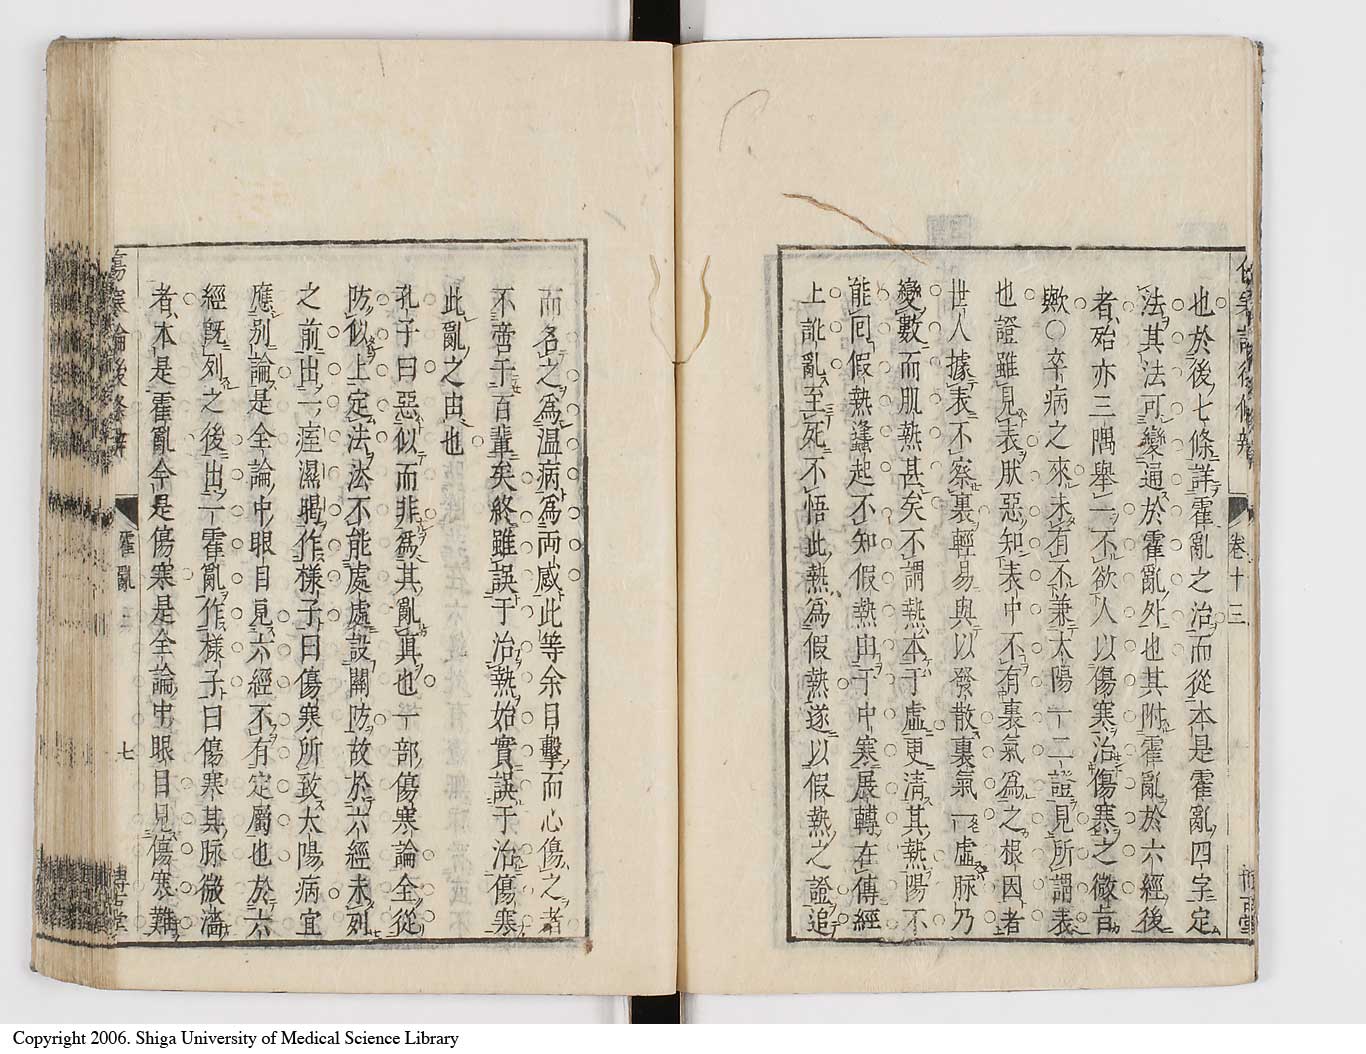 也於後七條詳霍亂之治而從本是霍亂四字定
法其法可變通於霍亂外也其附霍亂於六經後
者殆亦三隅舉一不欲人以傷寒治傷寒之微旨
歟〇卒病之來未有不兼太陽一二證見所謂表
也證雖見表厥惡知表中不有裏氣為之根因者
世人據表不察裏輕易與以發散裏氣一虛脉乃
變數而肌熱甚矣不謂熱本于虛更清其熱陽不
能回假熱蠭起不知假熱由于中寒展轉在傳經
上訛亂至死不悟此熱為假熱遂以假熱之證追
而名之為温病為兩感此等余目擊而心傷之者
不啻于百輩矣終雖誤于治熱始實誤于治傷寒
此亂之由也
孔子曰惡似而非為其亂真也一部傷寒論全從
防似上定法法不能處處設關防故於六經未列
之前出一痙濕暍作樣子曰傷寒所致太陽病宜
應别論是全論中眼目見六經不有定屬也於六
經既列之後出一霍亂作樣子曰傷寒其脉微濇
者本是霍亂今是傷寒是全論中眼目見傷寒難
卷十三
傷寒論後條辨
霍亂
七
博古堂
Copyright 2006. Shiga University of Medical Science Library